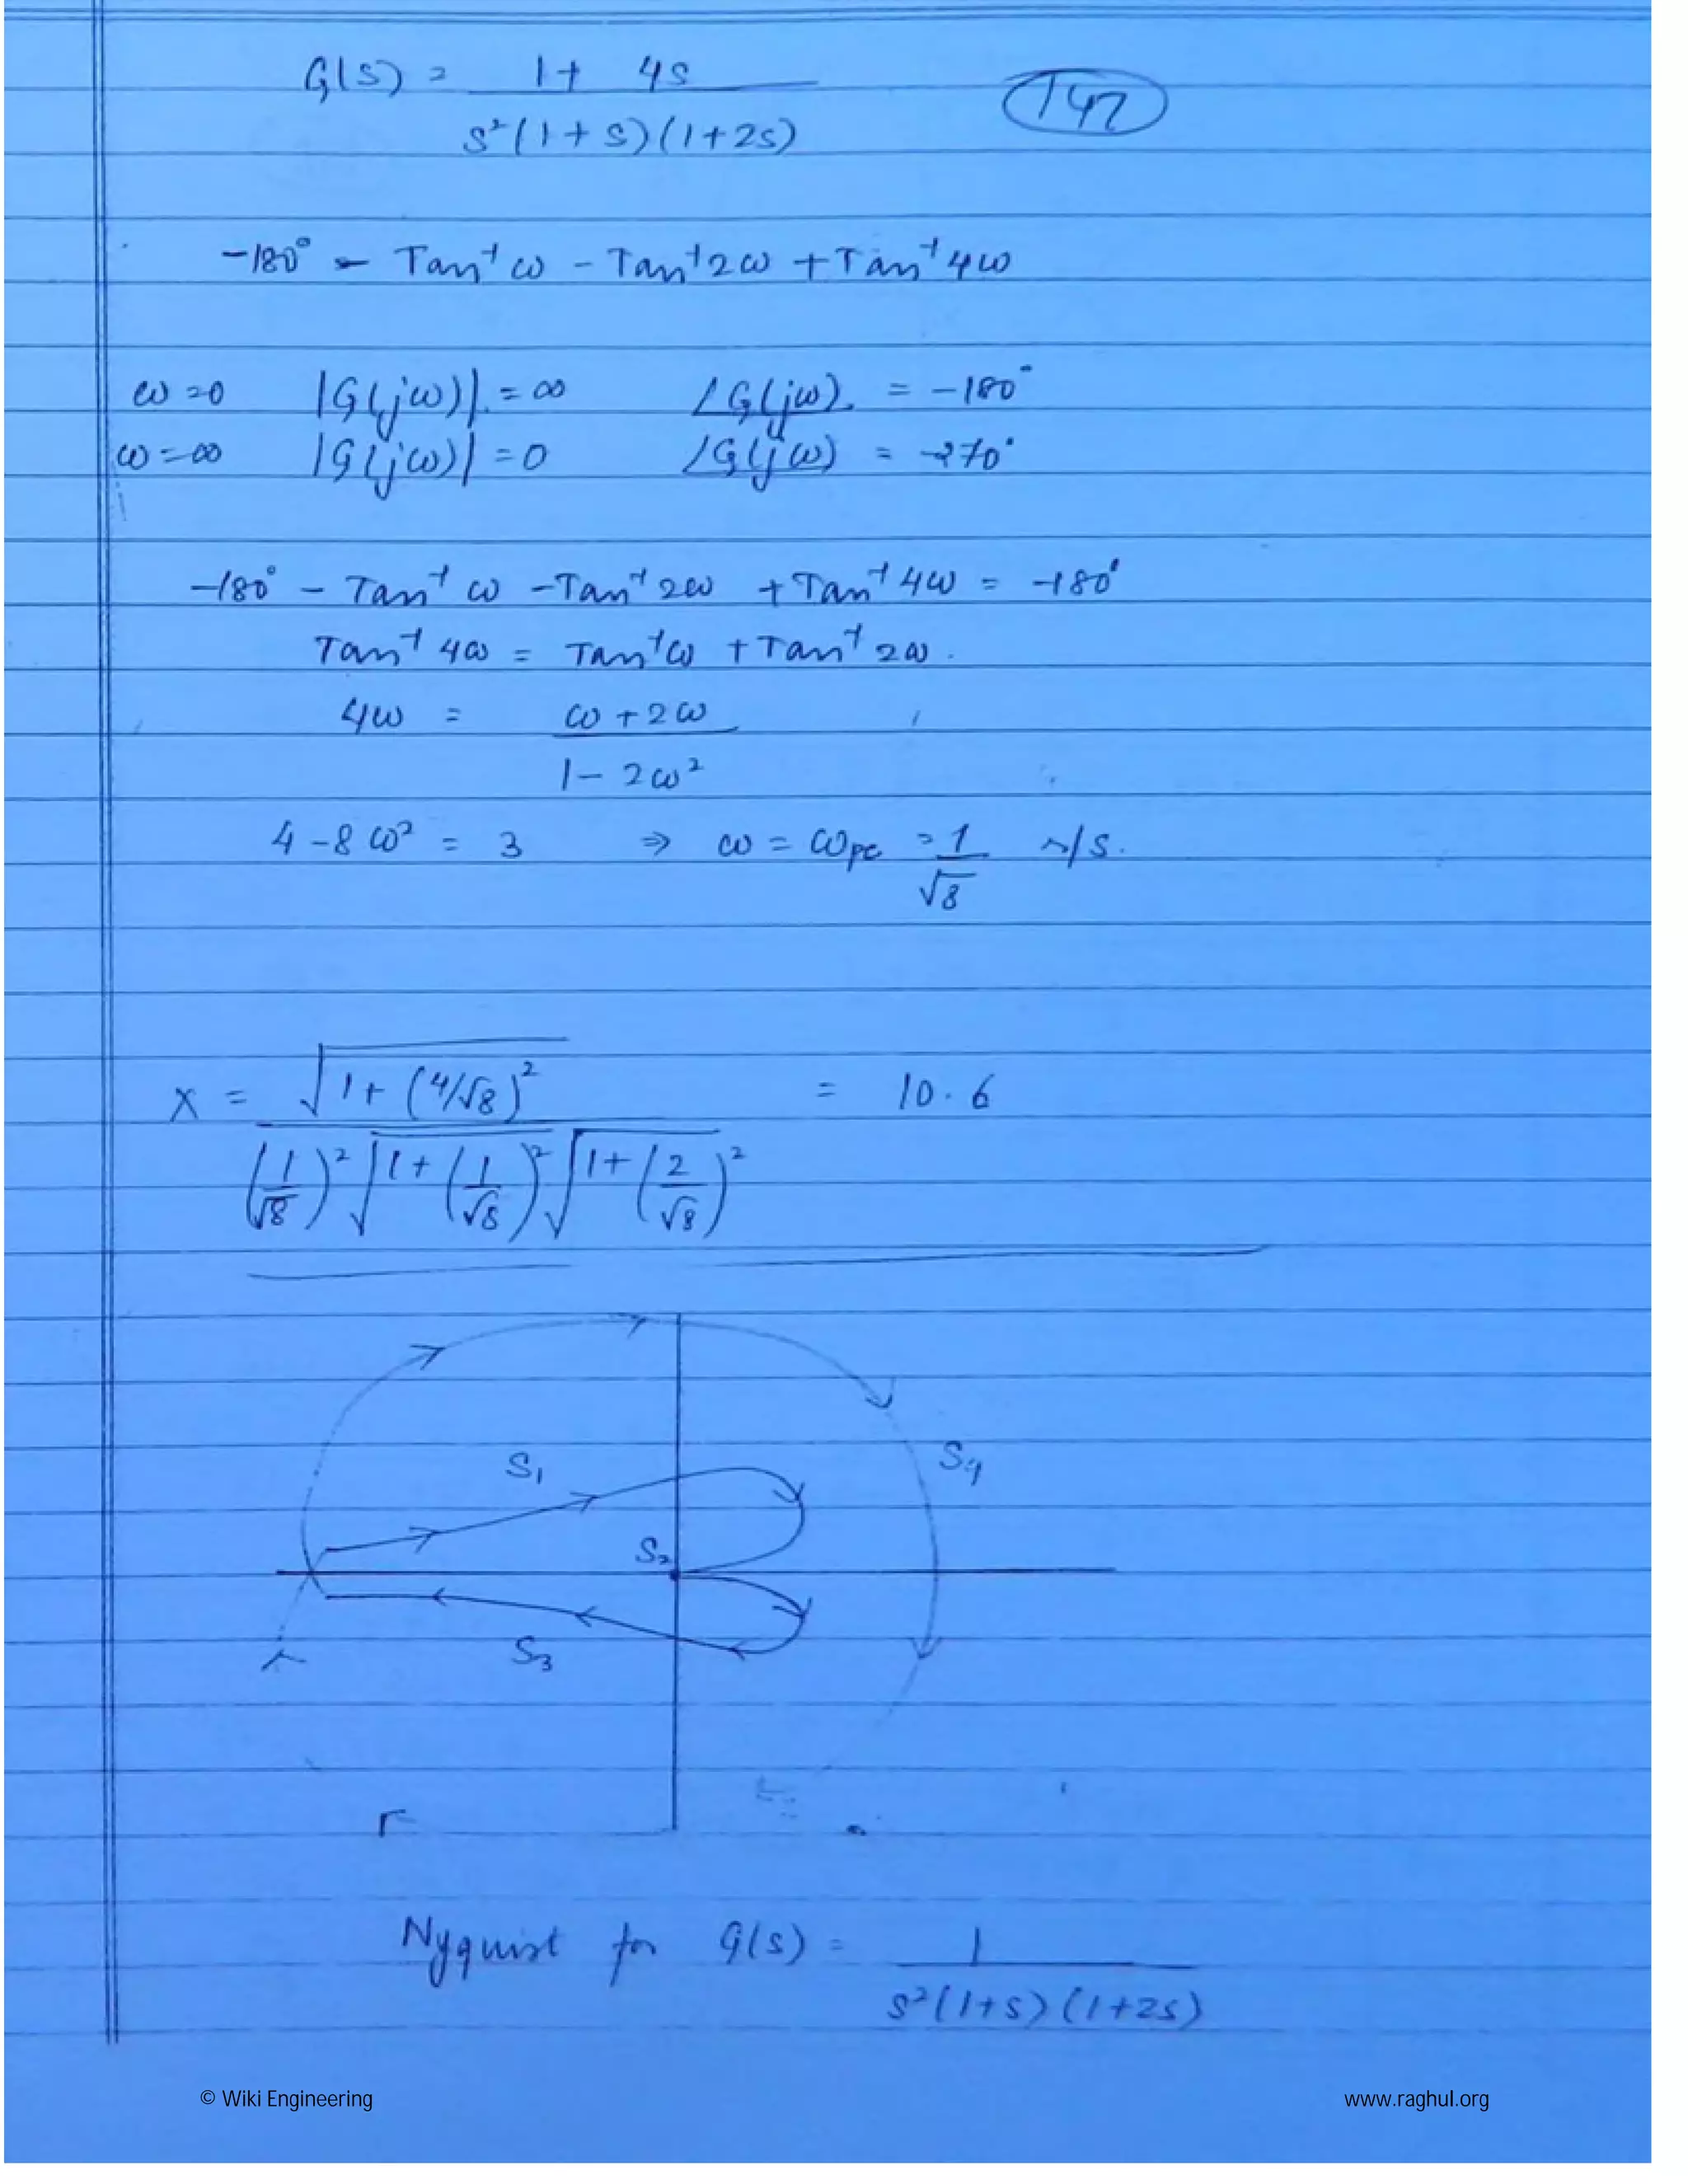 G(s) = 1 + 4s
T42
s²(1+s)(1+2s)
-180° - Tan⁻¹ω - Tan⁻¹2ω + Tan⁻¹4ω
ω=0 |G(jω)| = ∞ ∠G(jω) = -180°
ω=∞ |G(jω)| = 0 ∠G(jω) = -270°
-180° - Tan⁻¹ω - Tan⁻¹2ω + Tan⁻¹4ω = -180°
Tan⁻¹4ω = Tan⁻¹ω + Tan⁻¹2ω.
4ω = ω+2ω
1-2ω²
4-8ω² = 3 ⇒ ω = ωpc = 1/√8 r/s.
x = √1+(4/√8)² = 10.6
(1/√8)² √1+(1/√8)² √1+(2/√8)²
S₁
S₄
S₂
S₃
Nyquist for G(s) = 1
s²(1+s)(1+2s)
© Wiki Engineering www.raghul.org